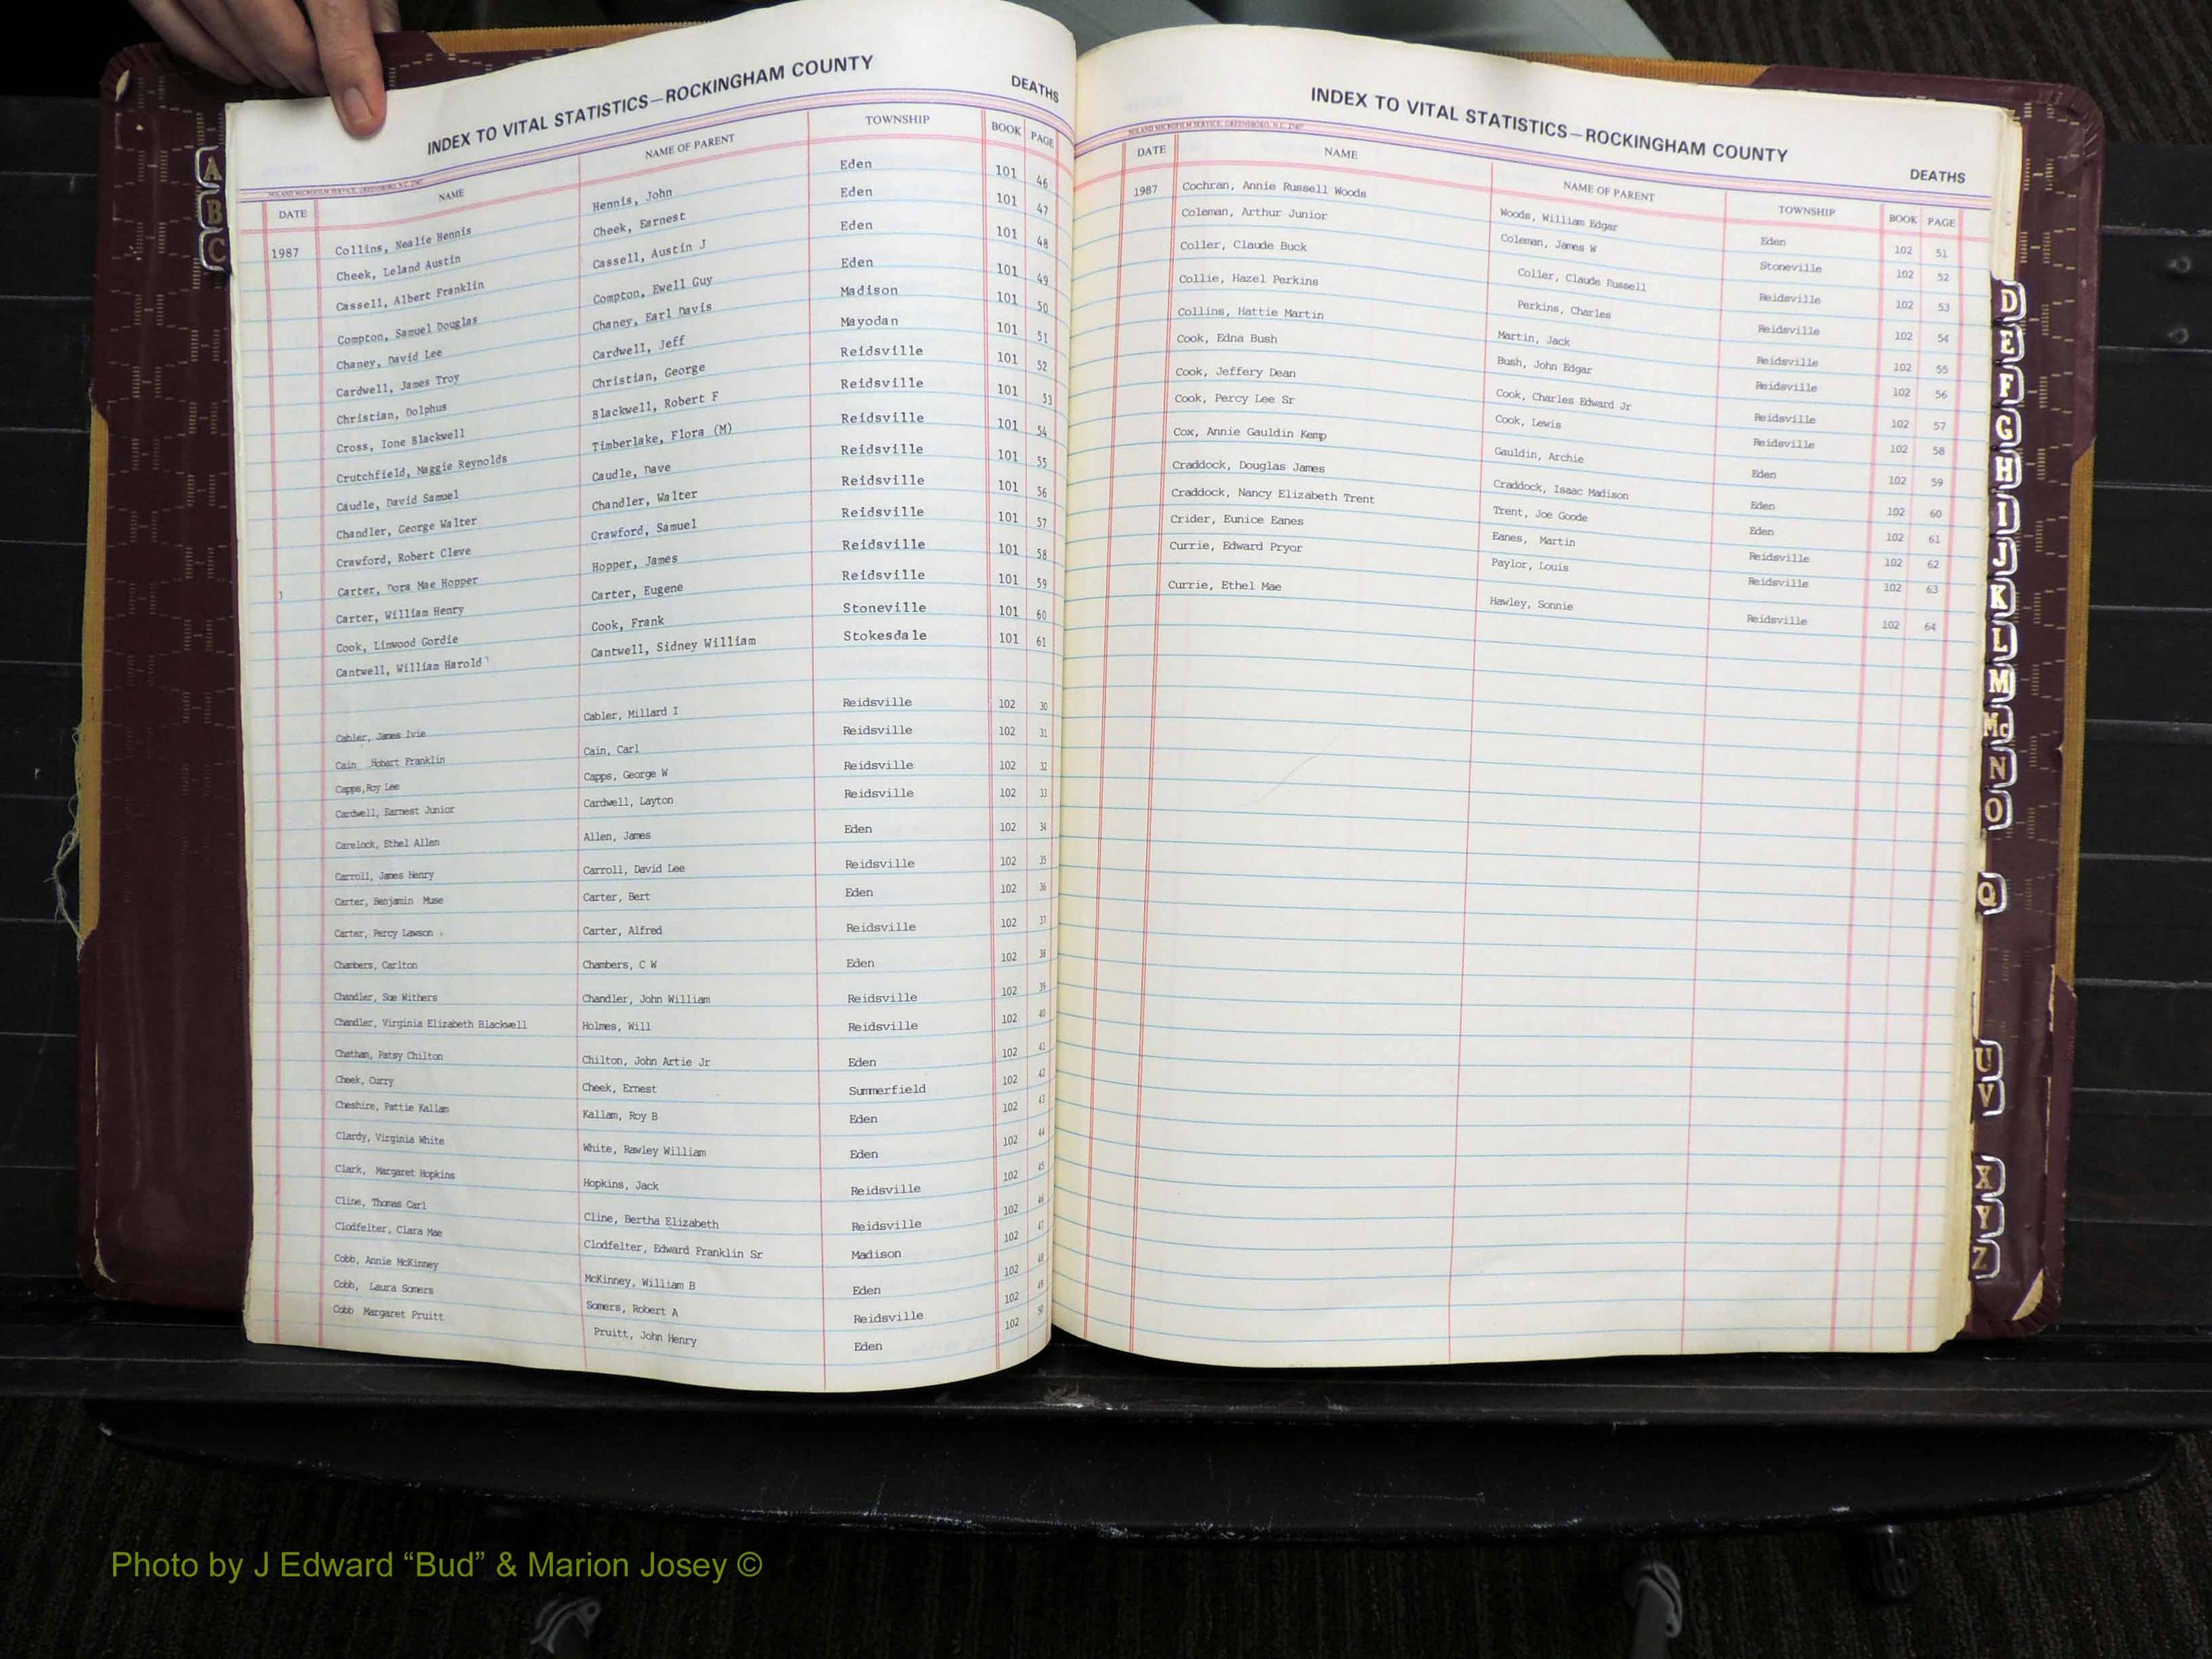 INDEX TO VITAL STATISTICS—ROCKINGHAM COUNTY
DEATHS
NOLAND MICROFILM SERVICE, GREENSBORO, N.C. 27407
DATE NAME NAME OF PARENT TOWNSHIP BOOK PAGE
1987 Collins, Nealie Hennis Hennis, John Eden 101 46
Cheek, Leland Austin Cheek, Earnest Eden 101 47
Cassell, Albert Franklin Cassell, Austin J Eden 101 48
Compton, Samuel Douglas Compton, Ewell Guy Eden 101 49
Chaney, David Lee Chaney, Earl Davis Madison 101 50
Cardwell, James Troy Cardwell, Jeff Mayodan 101 51
Christian, Dolphus Christian, George Reidsville 101 52
Cross, Ione Blackwell Blackwell, Robert F Reidsville 101 53
Crutchfield, Maggie Reynolds Timberlake, Flora (M) Reidsville 101 54
Caudle, David Samuel Caudle, Dave Reidsville 101 55
Chandler, George Walter Chandler, Walter Reidsville 101 56
Crawford, Robert Cleve Crawford, Samuel Reidsville 101 57
Carter, Dora Mae Hopper Hopper, James Reidsville 101 58
Carter, William Henry Carter, Eugene Reidsville 101 59
Cook, Linwood Gordie Cook, Frank Stoneville 101 60
Cantwell, William Harold Cantwell, Sidney William Stokesdale 101 61
Cabler, James Ivie Cabler, Millard I Reidsville 102 30
Cain Hobart Franklin Cain, Carl Reidsville 102 31
Capps,Roy Lee Capps, George W Reidsville 102 32
Cardwell, Earnest Junior Cardwell, Layton Reidsville 102 33
Carelock, Ethel Allen Allen, James Eden 102 34
Carroll, James Henry Carroll, David Lee Reidsville 102 35
Carter, Benjamin Muse Carter, Bert Eden 102 36
Carter, Percy Lawson Carter, Alfred Reidsville 102 37
Chambers, Carlton Chambers, C W Eden 102 38
Chandler, Sue Withers Chandler, John William Reidsville 102 39
Chandler, Virginia Elizabeth Blackwell Holmes, Will Reidsville 102 40
Chatham, Patsy Chilton Chilton, John Artie Jr Eden 102 41
Cheek, Curry Cheek, Ernest Summerfield 102 42
Cheshire, Pattie Kallam Kallam, Roy B Eden 102 43
Clardy, Virginia White White, Rawley William Eden 102 44
Clark, Margaret Hopkins Hopkins, Jack Reidsville 102 45
Cline, Thomas Carl Cline, Bertha Elizabeth Reidsville 102 46
Clodfelter, Clara Mae Clodfelter, Edward Franklin Sr Madison 102 47
Cobb, Annie McKinney McKinney, William B Eden 102 48
Cobb, Laura Somers Somers, Robert A Reidsville 102 49
Cobb Margaret Pruitt Pruitt, John Henry Eden 102 50
INDEX TO VITAL STATISTICS—ROCKINGHAM COUNTY
DEATHS
NOLAND MICROFILM SERVICE, GREENSBORO, N.C. 27407
DATE NAME NAME OF PARENT TOWNSHIP BOOK PAGE
1987 Cochran, Annie Russell Woods Woods, William Edgar Eden 102 51
Coleman, Arthur Junior Coleman, James W Stoneville 102 52
Coller, Claude Buck Coller, Claude Russell Reidsville 102 53
Collie, Hazel Perkins Perkins, Charles Reidsville 102 54
Collins, Hattie Martin Martin, Jack Reidsville 102 55
Cook, Edna Bush Bush, John Edgar Reidsville 102 56
Cook, Jeffery Dean Cook, Charles Edward Jr Reidsville 102 57
Cook, Percy Lee Sr Cook, Lewis Reidsville 102 58
Cox, Annie Gauldin Kemp Gauldin, Archie Eden 102 59
Craddock, Douglas James Craddock, Isaac Madison Eden 102 60
Craddock, Nancy Elizabeth Trent Trent, Joe Goode Eden 102 61
Crider, Eunice Eanes Eanes, Martin Reidsville 102 62
Currie, Edward Pryor Paylor, Louis Reidsville 102 63
Currie, Ethel Mae Hawley, Sonnie Reidsville 102 64
A
B
C
D
E
F
G
H
I
J
K
L
M
Mc
N
O
Q
U
V
X
Y
Z
Photo by J Edward “Bud” & Marion Josey ©